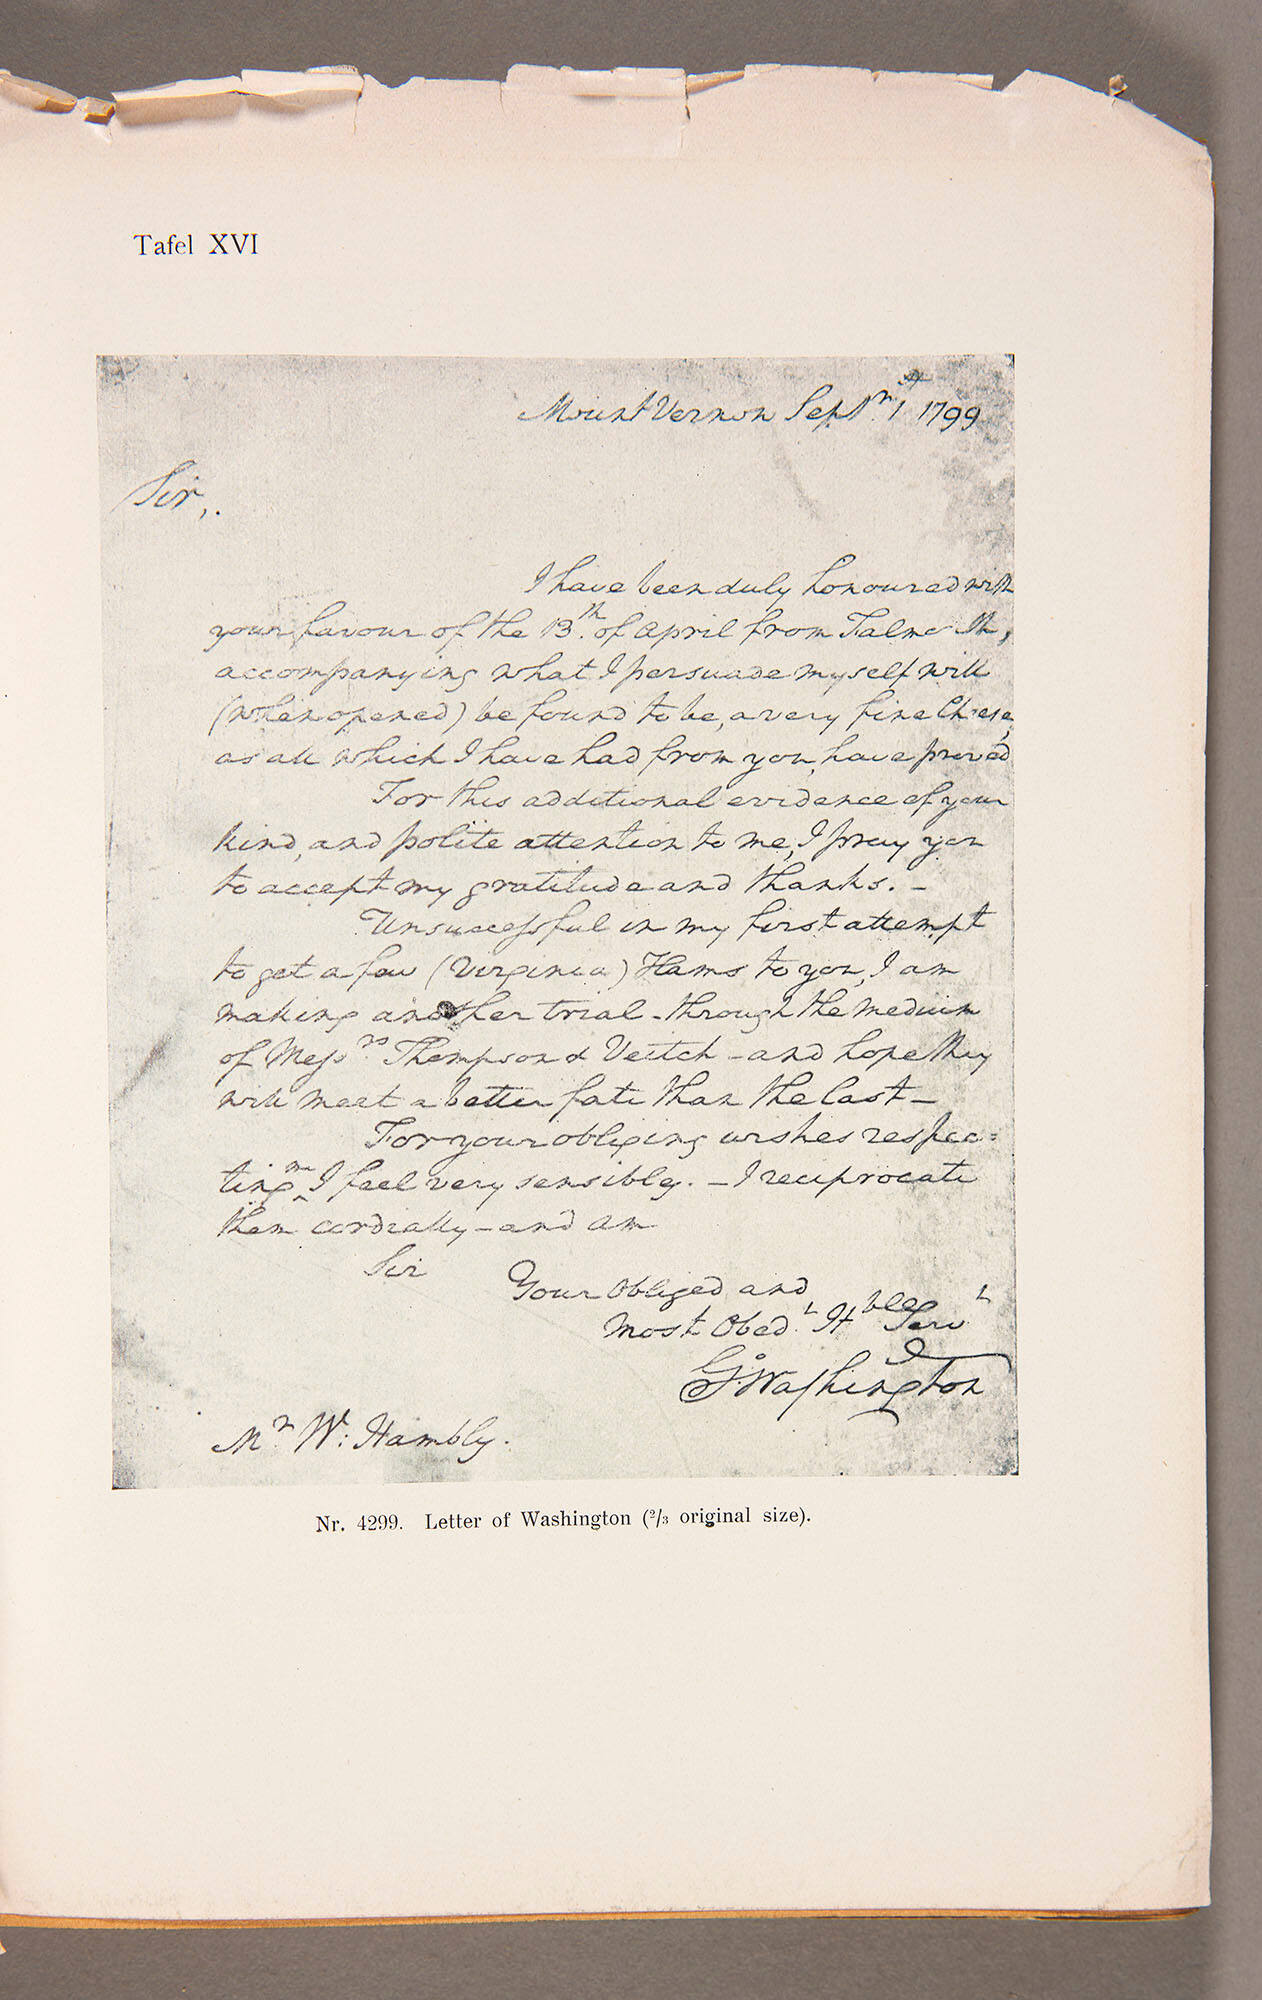 Tafel XVI
Mount Vernon Sepr. 1st 1799
Sir,
I have been duly honoured with
your favour of the 13th. of April from Falmo th,
accompanying what I persuade myself will
(when opened) be found to be, a very fine Cheese,
as all which I have had from you, have proved
For this additional evidence of your
kind, and polite attention to me, I pray you
to accept my gratitude and thanks. —
Unsuccessful in my first attempt
to get a few (Virginia) Hams to you, I am
making another trial - through the medium
of Messrs. Thompson & Veitch - and hope they
will meet a better fate than the last —
For your obliging wishes respec=
ting me I feel very sensibly. — I reciprocate
them cordially - and am
Sir
Your Obliged and
Most Obedt. Hble Servt
Go: Washington
Mr. Wm: Hambly.
Nr. 4299. Letter of Washington (2/3 original size).